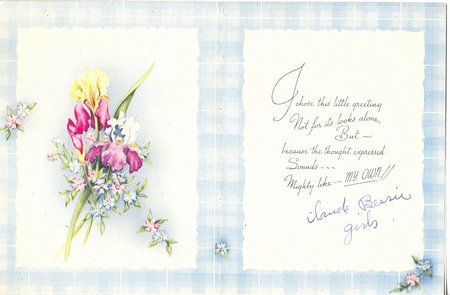 I chose this little greeting
Not for its looks alone,
But ~
because the thought expressed
Sounds...
Mighty like... MY OWN!!
Claude, Bessie
girls